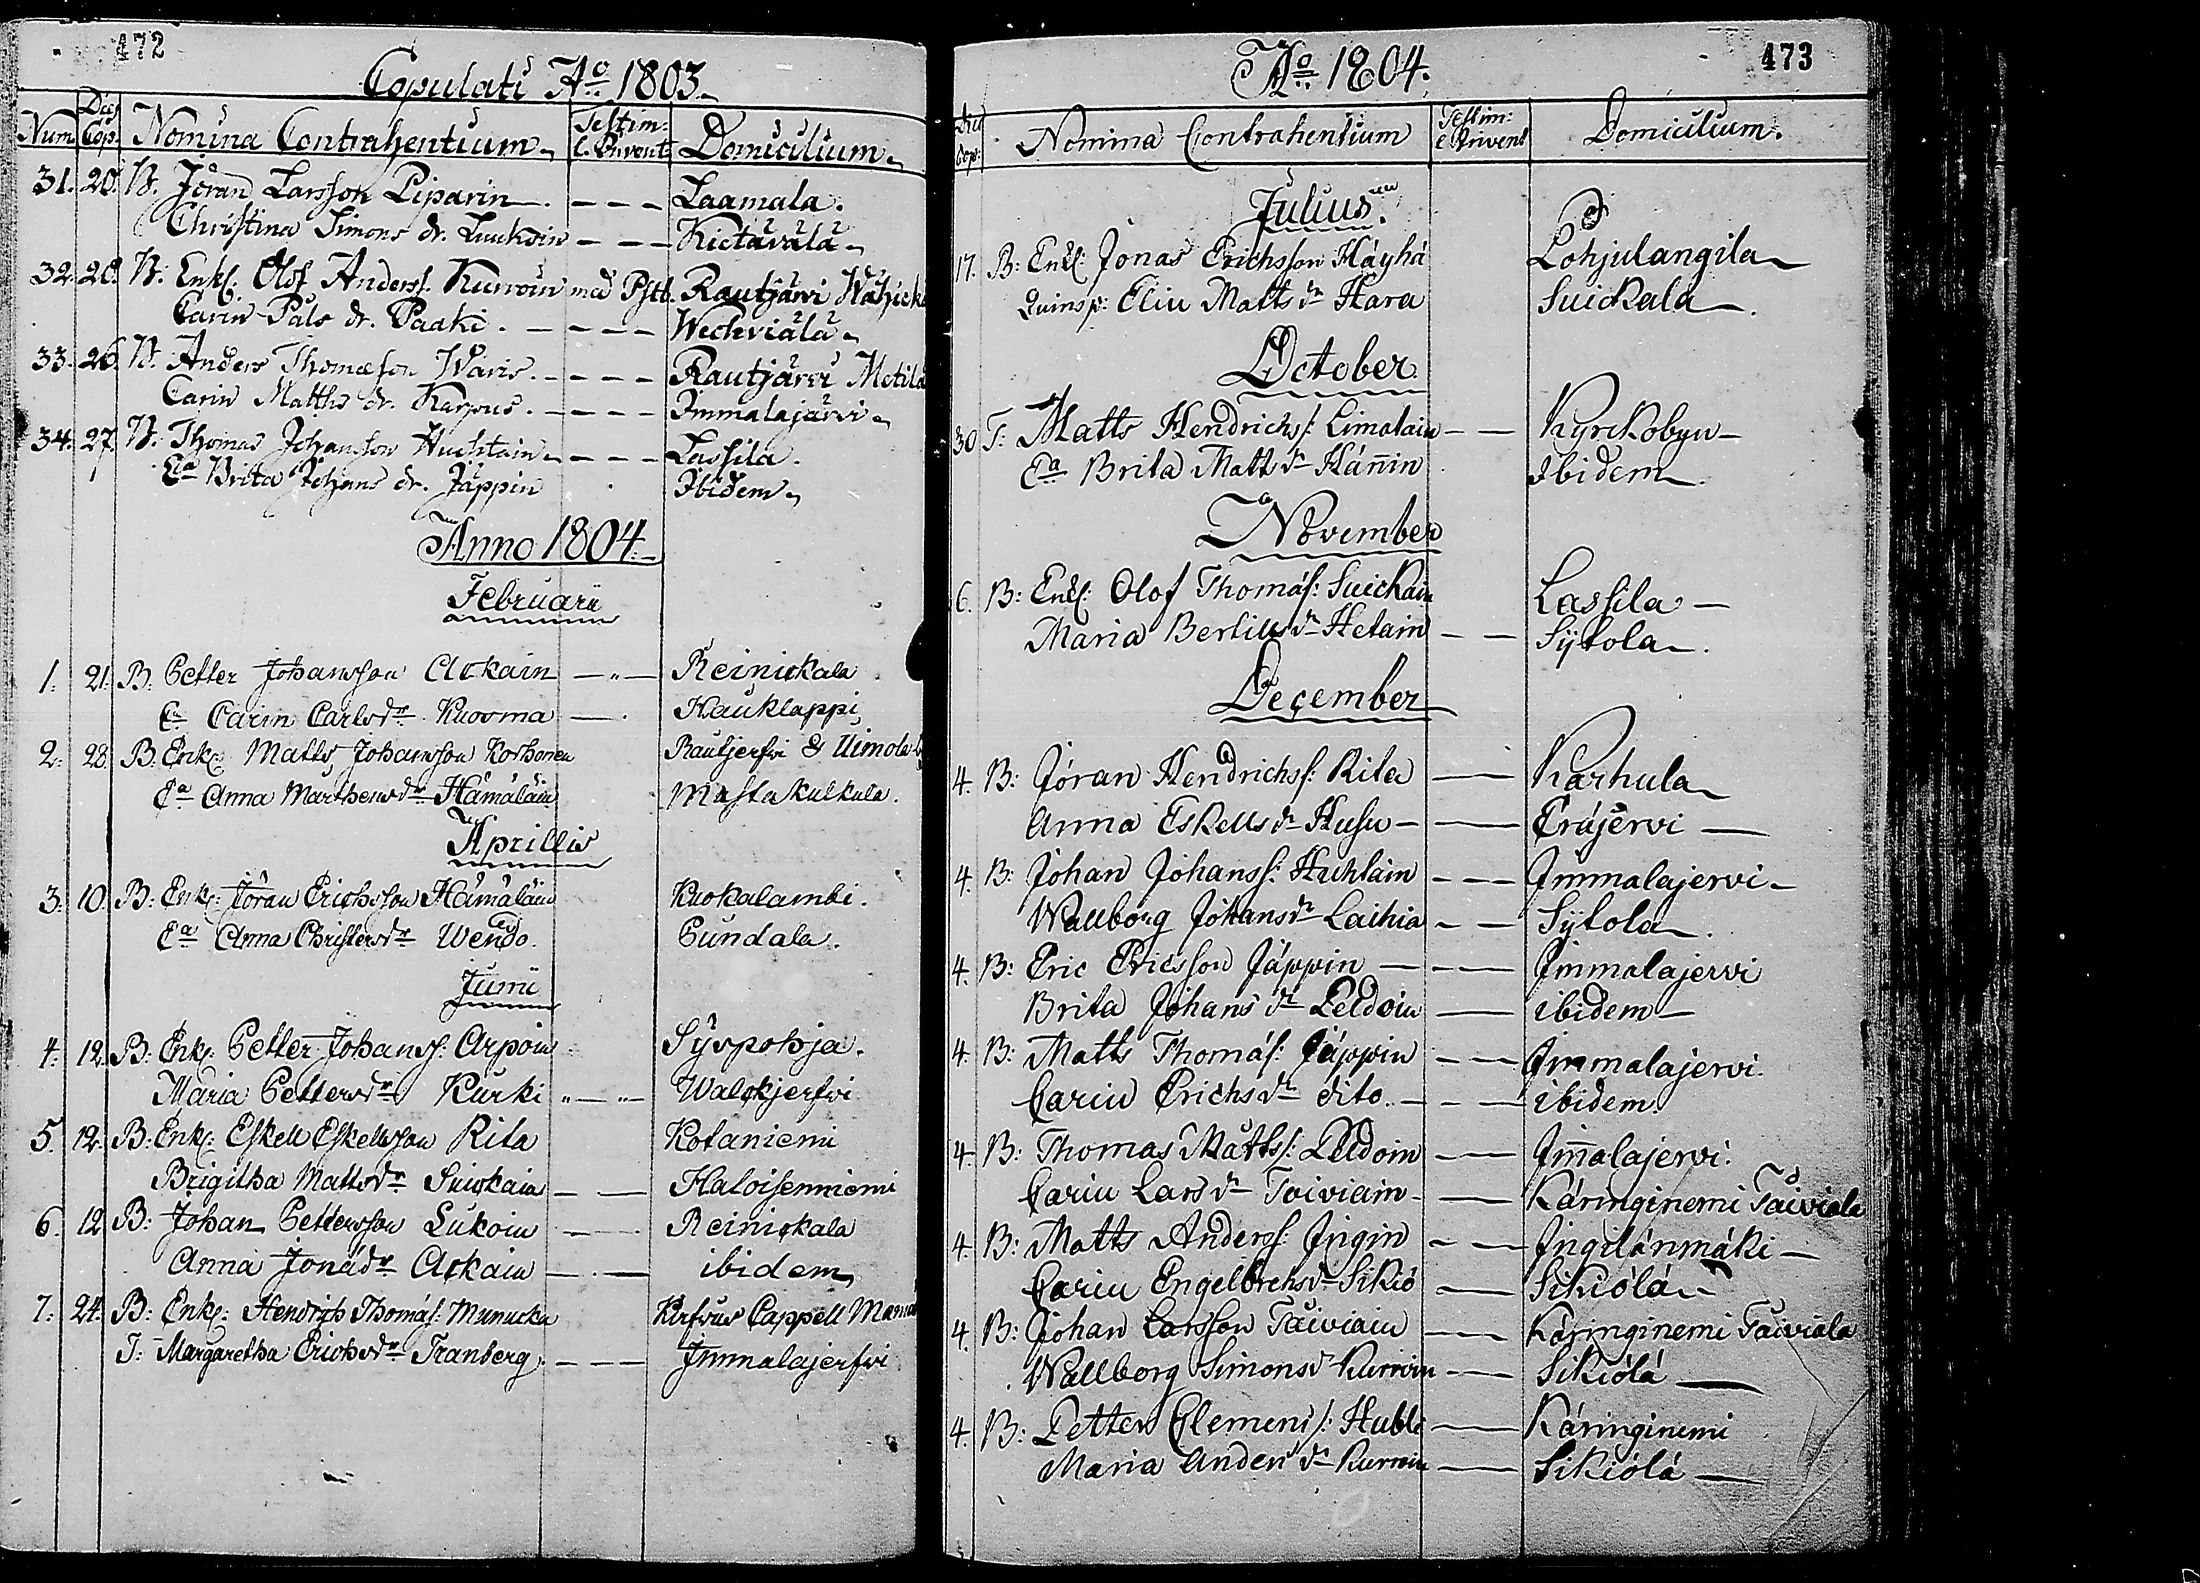 472
Copulati Aº 1803.
Num. Dies Cop. Nomina Contrahentium. Testim: C. Privent. Domicilium.
31. 20. B. Jöran Larsson Piparin. - - - Laamala.
Christina Simons dr. Luukoin - - - Kietäwälä
32. 20. B. Enkl. Olof Anderss. Kurwin med Pstb. Rautjärvi
Carin Påls dr. Paaki. - - - - Weckviälä
33. 26. B. Anders Thomæson Waris. - - - - Rautjärvi Metila
Carin Matths dr. Karpus. - - - - Immalajärvi
34. 27. B. Thomas Johansson Huchtain - - - Lassila.
Ea Brita Johans dr. Jäppin Ibidem
Anno 1804.
Februarii
1. 21. B. Petter Johansson Ackain - " - Reinickala
Ea Carin Carlsdr Kuosma - . Hauklappi
2. 28. B. Enkl: Matts Johansson Korhonen Rautjerfvi & Uimola
Ea Anna Marthensdr Hämäläin Mustakulkula.
Aprillis
3. 10. B: Enkl: Jöran Erichsson Hämäläin Kuokalambi.
Ea Anna Christersdr Wendo. Pundala.
Junii
4. 12. B: Enkl: Petter Johanss: Arpoin Syvpohja.
Maria Pettersdr Kurki " - " - Walckjerfvi
5. 12. B: Enkl: Eskell Eskellsson Rita Kotaniemi
Brigitha Mattsdr Suickain - - Haloisenniemi
6. 12. B: Johan Pettersson Lukoin - - Reinickala
Anna Jonædr Ackain - . - ibidem
7. 24. B: Enkl: Hendrich Thomæs: Munucka Kirfvus Cappell
T: Margaretha Erichsdr Tranberg. - - - Immalajerfvi
473
Aº 1804.
Dies Cop: Nomina Contrahentium Testim: C Privent Domicilium.
Julius
17. B: Enkl: Jonas Erichsson Häyhä Pohjulangila
Quinsp: Elin Matts dr Hara Suickala
October
30 T: Matts Hendrichs: Limatain - - Kyrckobyn
Ea Brita Matts dr Hänin Ibidem
November
6. B: Enkl: Olof Thomæs: Suickain Lassila -
Maria Bertills dr Hetain - - Sytola.
December
4. B: Jöran Hendrichs: Rita - Karhula
Anna Eskells dr Husu - - Eräjervi -
4. B: Johan Johanss: Huhtain - - - Immalajervi
Wallborg Johans dr Laihia - - Sytola.
4. B: Eric Ericsson Jäppin - - - Immalajervi
Brita Johans dr Peldoin - ibidem -
4. B: Matts Thomæs: Jäppin - - - Immalajervi.
Carin Erichs dr dito. - - - ibidem.
4. B: Thomas Matts: Peldoin - - Immalajervi.
Carin Lars dr Toiviain - - Käringinemi Taiviala
4. B: Matts Anderss: Ingin - - Ingilänmäki -
Carin Engelbrehsdr Sikiö - Sikiölä
4. B: Johan Larsson Taiviain - - Käringinemi Taiviala
Wallborg Simonsd Kurwin - - Sikiölä -
4. B: Petter Clemens: Hubli - Käringinemi
Maria Anders dr Kurwin - Sikiölä -